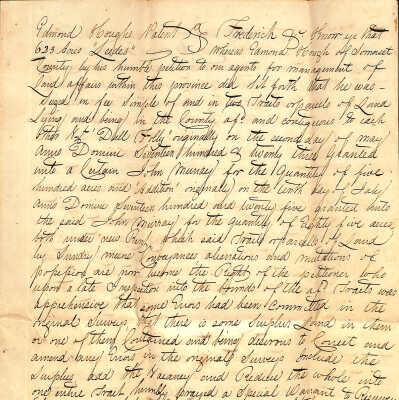 Edmond Hough's Patent Frederick &c Know ye that
623 Acres Whereas Edmond Hough of Somerset
County by his humble petition to our agents for management of
Land affairs within this province did set forth that he was
Seized in fee Simple of and in two Tracts or parcels of Land
Lying and being in the County afd. and contiguous to each
Other Folly originally on the second day of may
Anno Domini Seventeen hundred & twenty three granted
unto a Certain John Murray for the quantity of five
hundred acres and Addition originally on the tenth day of July
Anno Domini Seventeen hundred and twenty five granted unto
the said John Murray for the quantity of Eighty five acres
both under new Which said Tracts or parcels of Land
by Sundry mesne Conveyances alienations and mutations of
possession are now become the Right of the petitioner who
upon a late Inspection into the bounds of the afd. Tracts was
apprehensive that some Errors had been Committed in the
original Surveys that there is some Surplus Land in them
or one of them Contained and being desirous to Correct and
amend any Errors in the original Surveys include the
Surplus add the Vacancy and Reduce the whole into
one entire Tract humbly prayed a Special Warrant to Resurvey